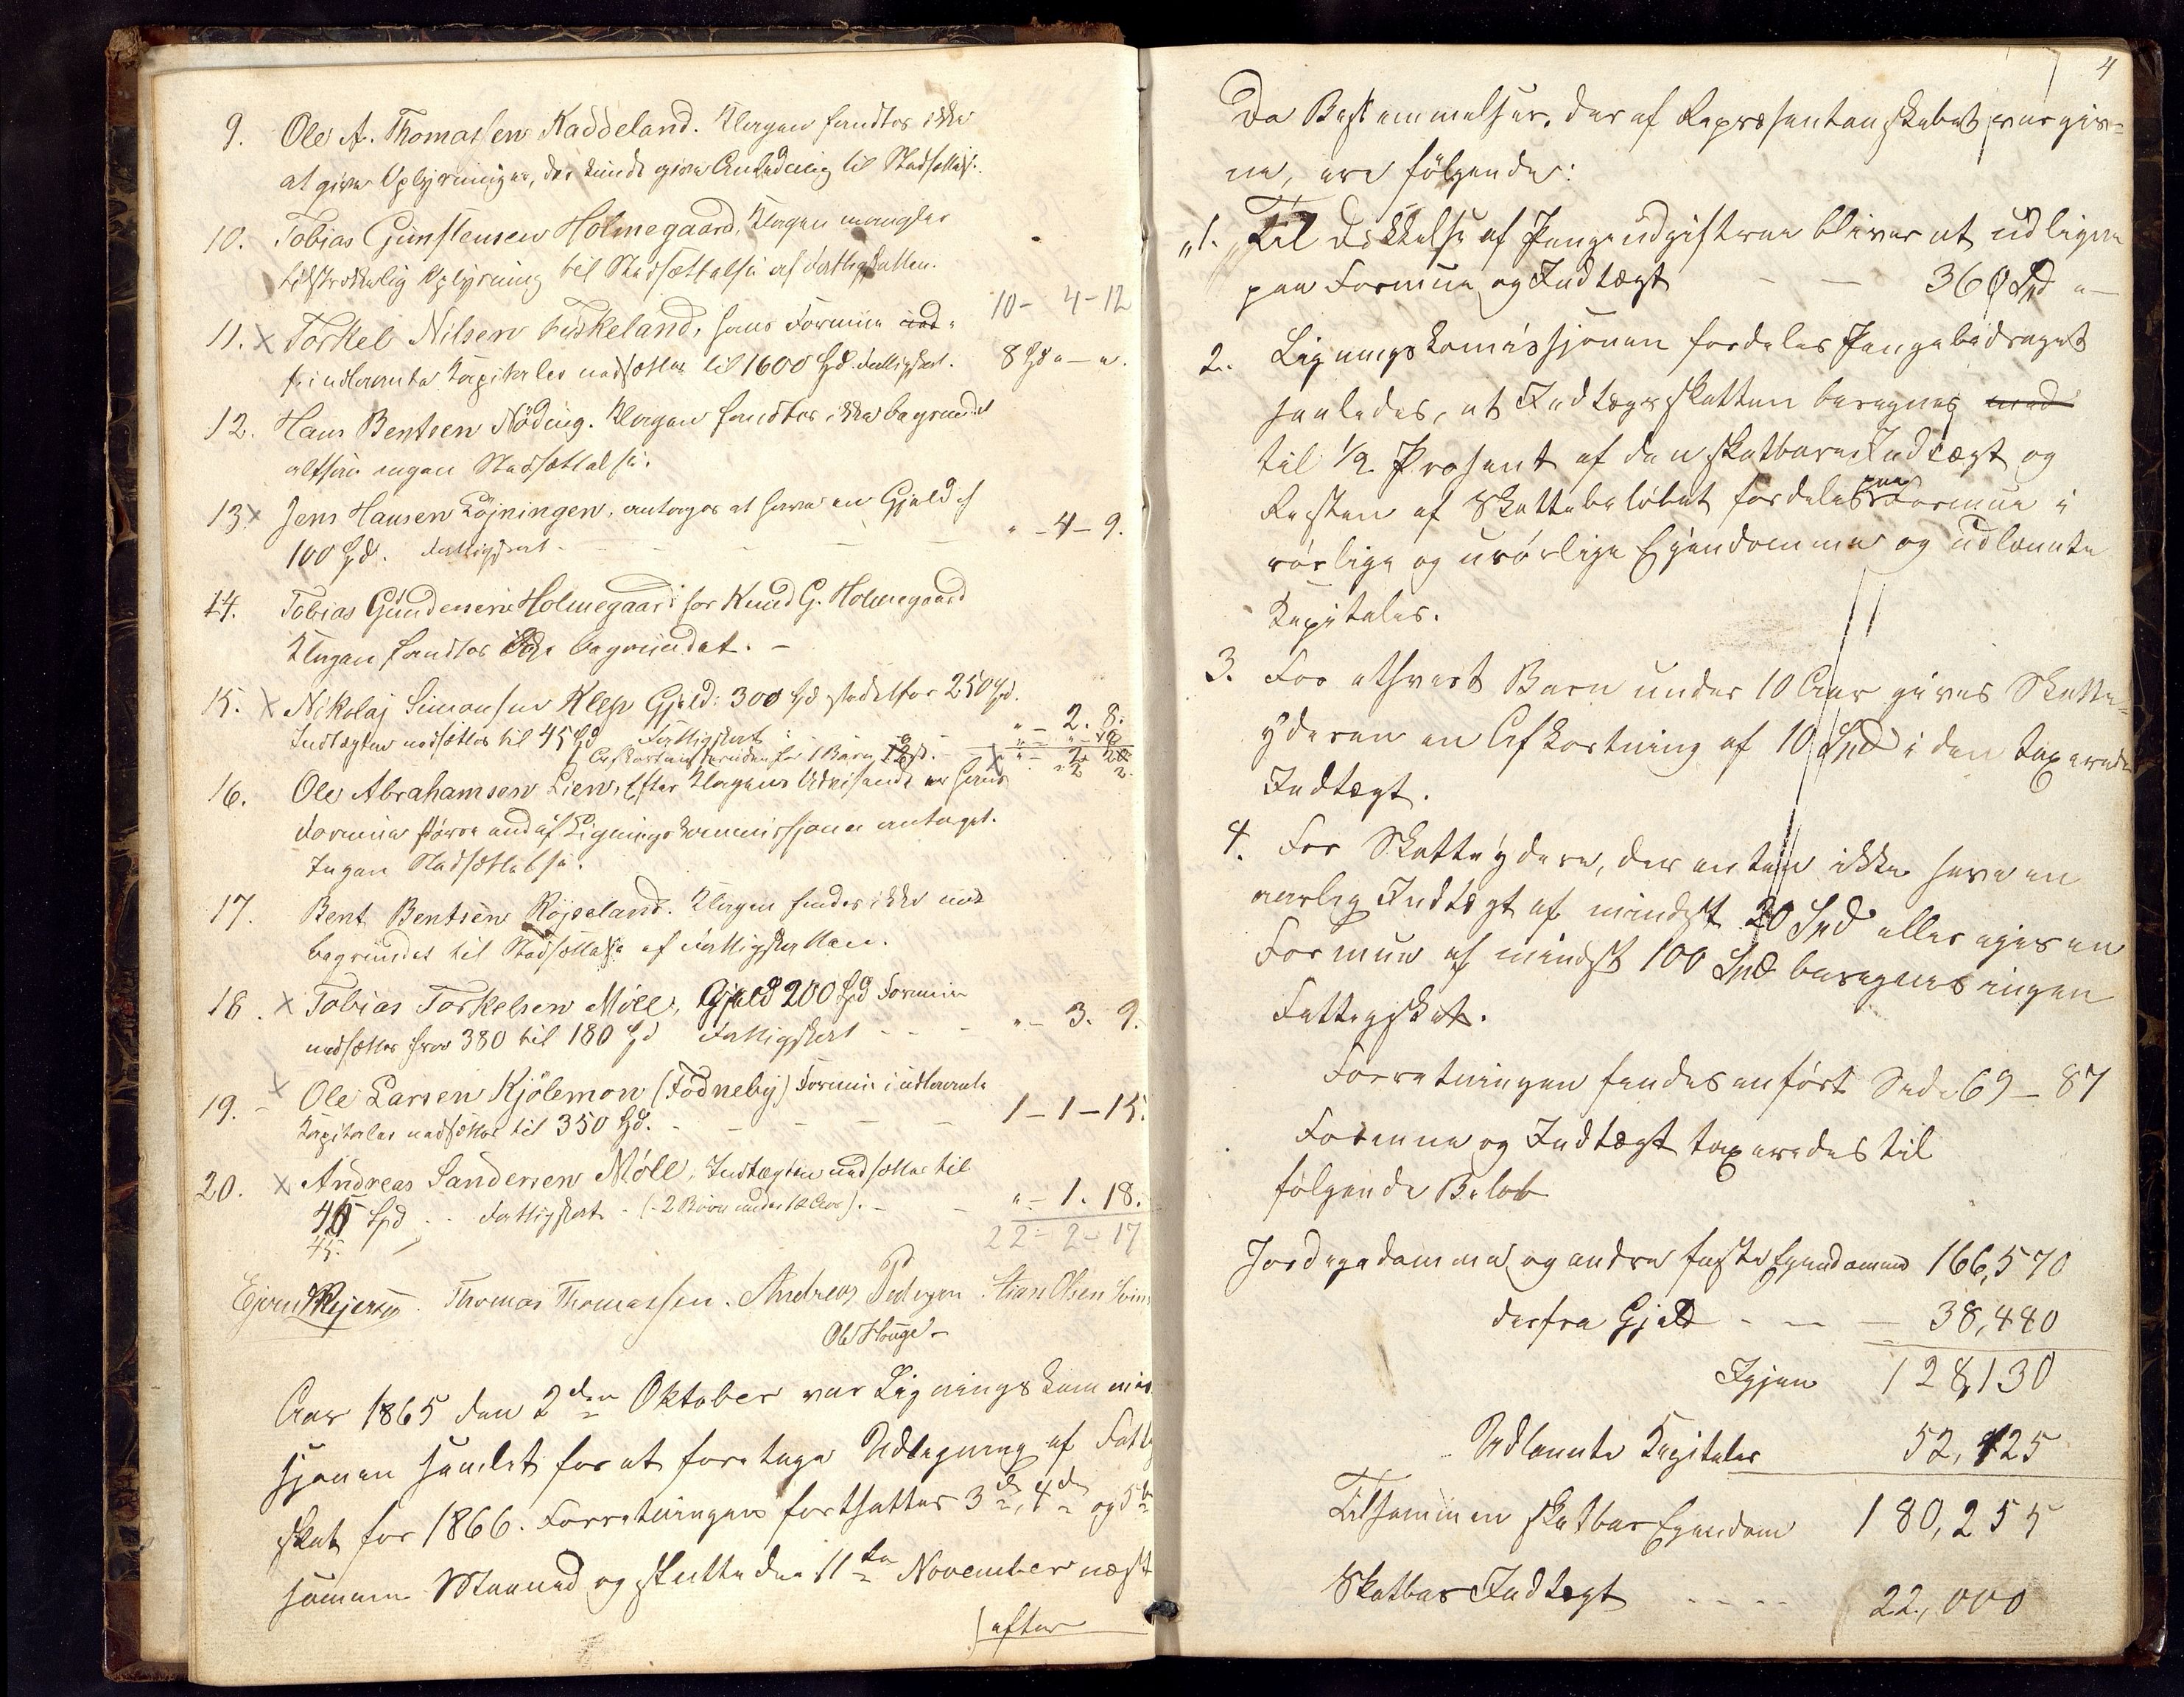 9. Ole A. Thomassen Kaddeland. Klagen fandtes ikke
at give Oplysninger, der kunde give Anledning til Nedsættelse.
10. Tobias Gunstensen Holmegaard, Klagen mangler
tilstrækkelig Oplysning til Nedsættelse af Fattigskatten.
10 - 4 - 12
11. x Torkel Nilsen Fuskeland, hans Formue
i udlaante Kapitaler nedsættes til 1600 Spd. Fattigskat. 8 Spd " - ".
12. Hans Bentsen Nöding. Klagen fandtes ikke begrundet
altsaa ingen Nedsættelse.
13. x Jens Hansen Löjningen, antages at have en Gjeld af
100 Spd. Fattigskat - - - - " - 4 - 9.
14. Tobias Gundersen Holmegaard for Knud G. Holmegaard
Klagen fandtes ikke begrundet. -
15. x Nikolaj Simonsen Klep Gjeld: 300 Spd istedetfor 250 Spd.
Indtægten nedsættes til 45 Spd Fattigskat " - 2. 8.
for 1 Barn
16. Ole Abrahamsen Lien, Efter Klagens Udvisende er hans
Formue större end af Ligningskommissjonen antaget.
Ingen Nedsættelse.
17. Bent Bentsen Röjseland. Klagen findes ikke
begrundet til Nedsættelse af Fattigskatten.
18. x Tobias Torkelsen Möll, Gjeld 200 Spd Formue
nedsættes fra 380 til 180 Spd Fattigskat - - - " - 3. 9.
19. - x Ole Larsen Kjölemon (Fodneby) Formue i udlaante
Kapitaler nedsættes til 350 Spd. - - - - - 1 - 1 - 15.
20. x Andreas Sandersen Möll, Indtægten nedsættes til
45 Spd - - Fattigskat - (- 2 Börn under 10 Aar). - - " - 1. 18.
45. 22 - 2 - 17
Thomas Thomassen. Andreas Pedersen Stian Olsen
Ole Houge -
Aar 1865 den 2den Oktober var Ligningskommis
sjonen samlet for at foretage Udligning af Fattig
skat for 1866. Forretningen fortsattes 3de, 4de og 5te
samme Maaned og sluttedes 11te November næst
efter
4
De Bestemmelser, der af Repræsentantskabet var giv=
ne, ere følgende:
"1. "Til Dækkelse af Pengeudgifterne bliver at udligne
paa Formue og Indtægt - - 360 Spd " -
2. Ligningskomissjonen fordeler Pengebidraget
saaledes, at Indtægsskatten beregnes med
til 1/2 Prosent af den skatbare Indtægt og
Resten af Skattebeløbet fordeles paa Formue i
rørlige og urørlige Ejendomme og udlaante
Kapitaler.
3. For ethvert Barn under 10 Aar gives Skatte=
yderen en Afkortning af 10 Spd i den taxerede
Indtægt.
4. For Skatteydere, der enten ikke have en
aarlig Indtægt af mindst 20 Spd eller ejer en
Formue af mindst 100 Spd beregnes ingen
Fattigskat.
Forretningen findes anført Side 69 - 87
Formue og Indtægt taxeredes til
følgende Beløb
Jordegodomme og andre faste Ejendomme 166,570
derfra Gjeld - - - 38,440
Igjen 128,130
Udlaante Kapitaler 52,125
Tilsammen skatbar Ejendom 180,255
Skatbar Indtægt - - - - 22,000